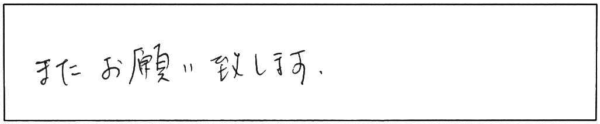 またお願い致します.